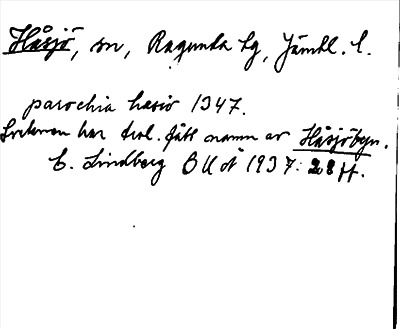 Håsjö, sn, Ragunda tg, Jämtl. l.
parochia hasio 1347.
Socknen har trol. fått namn av Håsjöbyn.
C. Lindberg BUÅ 1937: 28 ff.